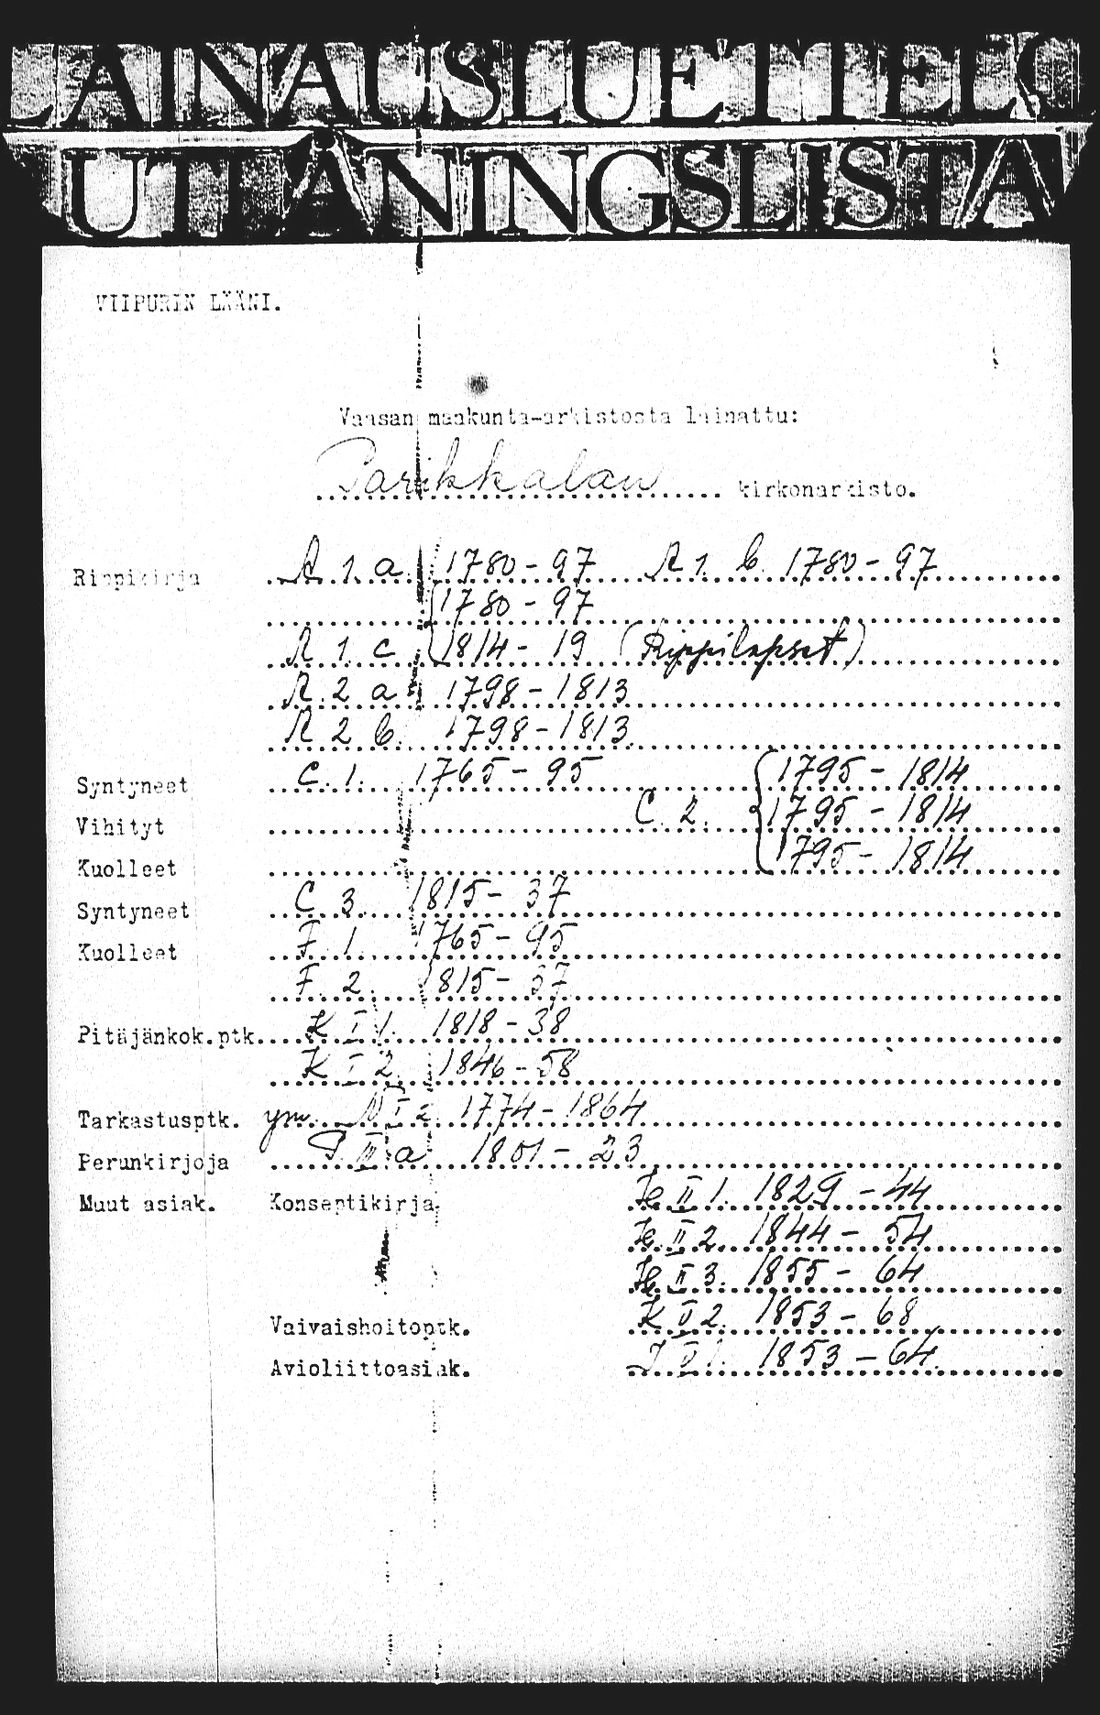 LAINAUSLUETTELO
UTLÅNINGSLISTA
VIIPURIN LÄÄNI.
Vaasan maakunta-arkistosta lainattu:
Parikkalan kirkonarkisto.
Rippikirja A 1 a. 1780-97 A 1. b. 1780-97
1780-97
A 1 c 1814-19 (Rippilapset)
A. 2 a 1798-1813
A 2 b. 1798-1813
Syntyneet C. 1. 1765-95 1795-1814
Vihityt C. 2. 1795-1814
Kuolleet 1795-1814
Syntyneet C 3. 1815-37
Kuolleet F. 1. 1765-95
F. 2. 1815-37
Pitäjänkok.ptk. K I 1. 1818-38
K I 2. 1846-58
Tarkastusptk. ym. N I 2 1774-1864
Perunkirjoja P. II a 1801-23
Muut asiak. Konseptikirja II 1. 1829-44
II 2. 1844-54
II 3. 1855-64
Vaivaishoitoptk. K 2. 1853-68
Avioliittoasiak. 1853-64.